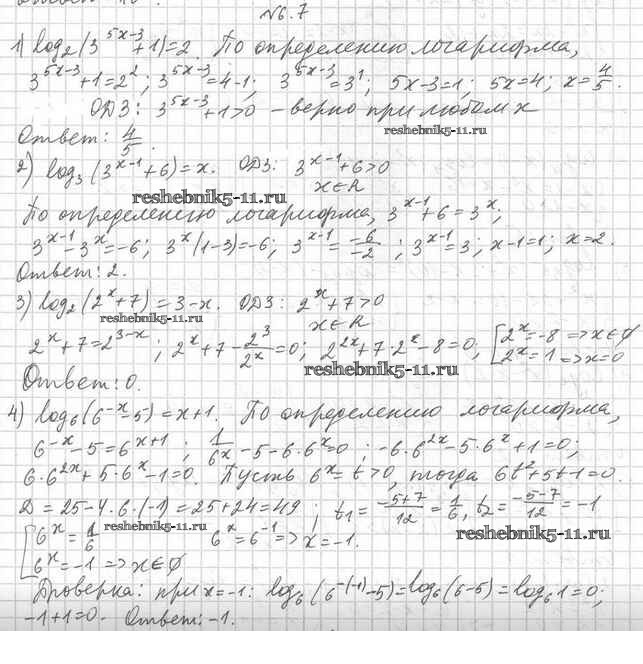 №6.7
1) log₂(3^(5x-3)+1)=2. По определению логарифма,
3^(5x-3)+1=2²; 3^(5x-3)=4-1; 3^(5x-3)=3¹; 5x-3=1; 5x=4; x=4/5.
ОДЗ: 3^(5x-3)+1>0 - верно при любом x
Ответ: 4/5.
reshebnik5-11.ru
2) log₃(3^(x-1)+6)=x. ОДЗ: 3^(x-1)+6>0
reshebnik5-11.ru x∈R
По определению логарифма, 3^(x-1)+6=3^x;
3^(x-1)-3^x=-6; 3^x(1-3)=-6; 3^(x-1)=-6/-2; 3^(x-1)=3; x-1=1; x=2.
Ответ: 2.
3) log₂(2^x+7)=3-x. ОДЗ: 2^x+7>0
reshebnik5-11.ru x∈R
2^x+7=2^(3-x); 2^x+7-2³/2^x=0; 2^(2x)+7·2^x-8=0; [2^x=-8=>x∈∅
2^x=1=>x=0
reshebnik5-11.ru
Ответ: 0.
4) log₆(6^(-x)-5)=x+1. По определению логарифма,
6^(-x)-5=6^(x+1); 1/6^x-5-6·6^x=0; -6·6^(2x)-5·6^x+1=0;
6·6^(2x)+5·6^x-1=0. Пусть 6^x=t>0, тогда 6t²+5t-1=0.
D=25-4·6·(-1)=25+24=49; t₁=(-5+7)/12=1/6, t₂=(-5-7)/12=-1
[6^x=1/6 reshebnik5-11.ru 6^x=6^(-1)=>x=-1. reshebnik5-11.ru
6^x=-1=>x∈∅
Проверка: при x=-1: log₆(6^(-(-1))-5)=log₆(6-5)=log₆1=0;
-1+1=0. Ответ: -1.